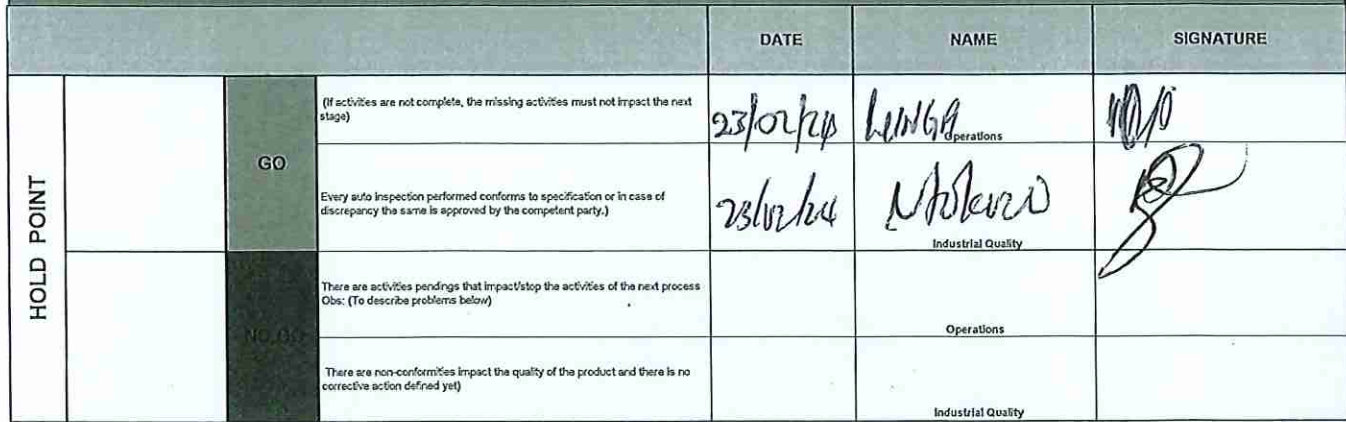 DATE NAME SIGNATURE
HOLD POINT
GO
(If activities are not complete, the missing activities must not impact the next
stage)
23/02/24
LUNGA
Operations
Every auto inspection performed conforms to specification or in case of
discrepancy the same is approved by the competent party.)
23/02/24
Industrial Quality
NO GO
There are activities pendings that impact/stop the activities of the next process
Obs: (To describe problems below)
Operations
There are non-conformities impact the quality of the product and there is no
corrective action defined yet)
Industrial Quality